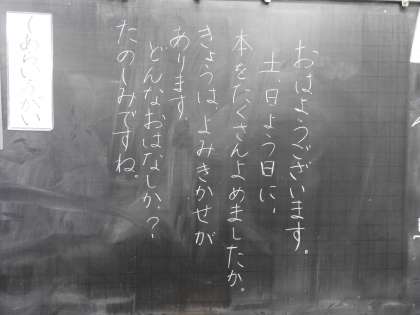 おはようございます。
土、日よう日に、
本をたくさんよめましたか。
きょうは、よみきかせが
あります。
どんなおはなしか？
たのしみですね。